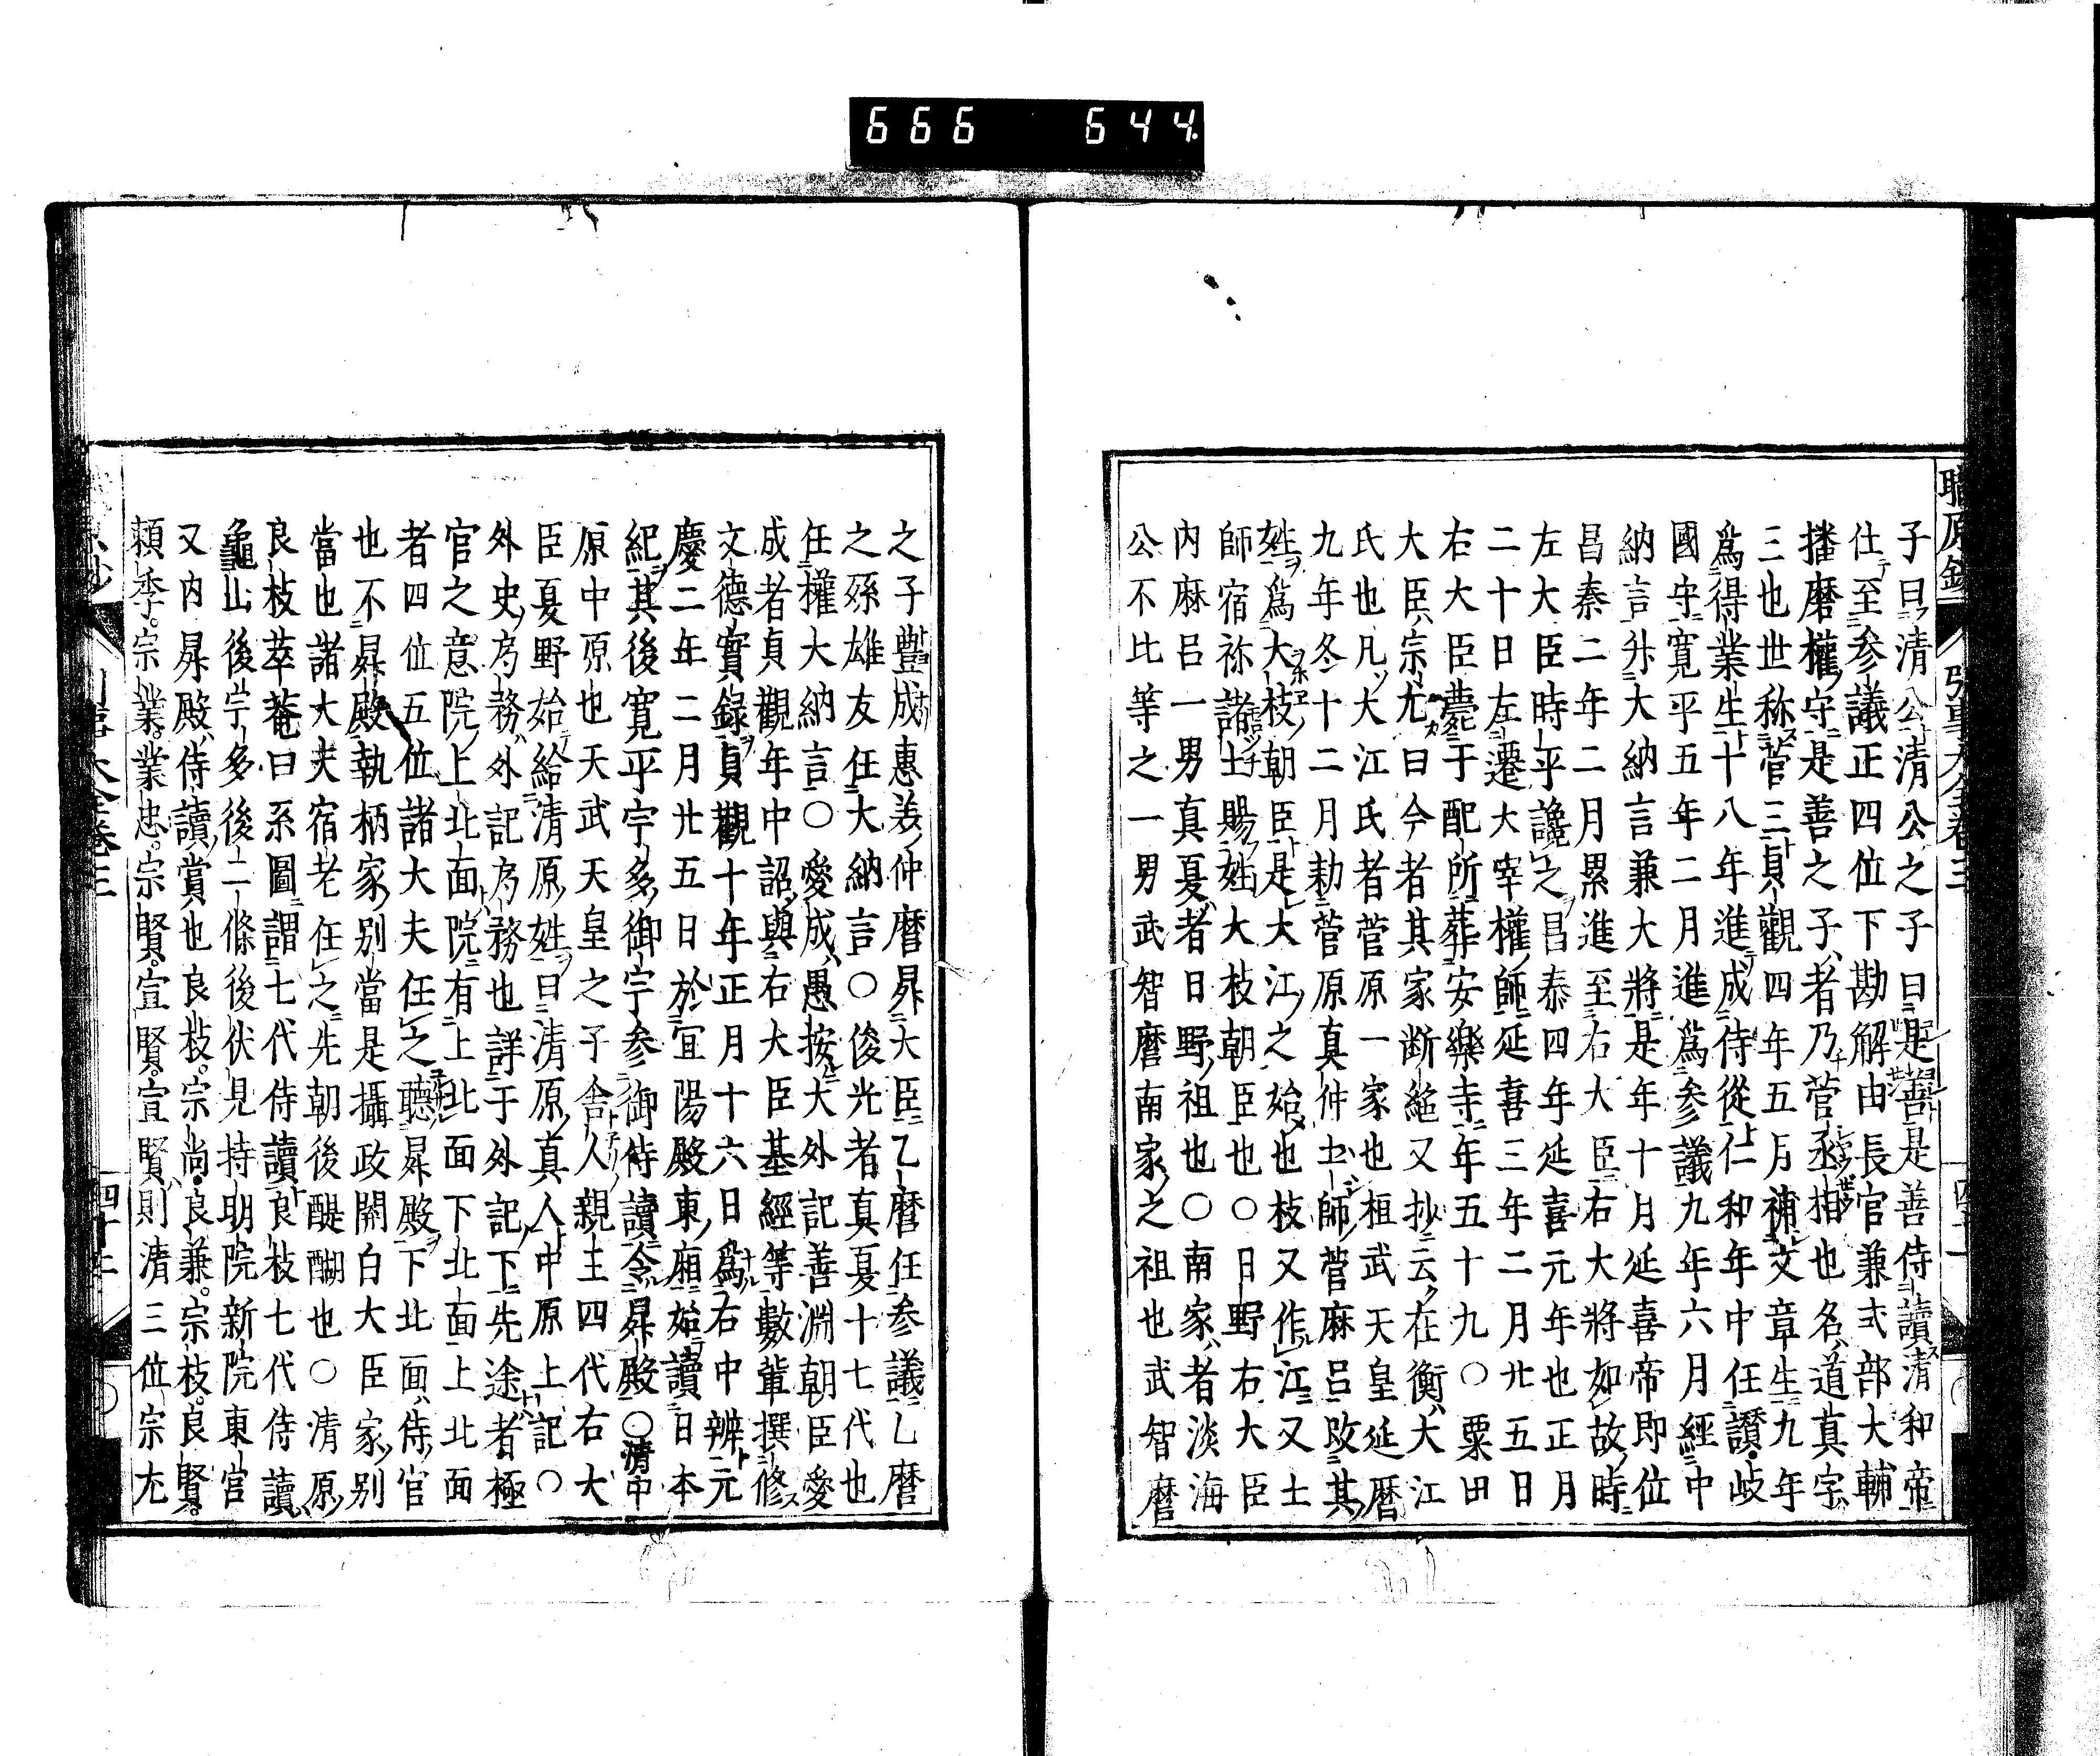 666 644.
子曰清公清公之子曰是善是善侍讀清和帝
仕至参議正四位下勘解由長官兼式部大輔
播磨權守是善之子者乃菅丞相也名道真字
三也世称菅三貞觀四年五月補文章生九年
爲得業生十八年進成侍從仁和年中任讃岐
國守寛平五年二月進爲参議九年六月經中
納言升大納言兼大將是年十月延喜帝即位
昌泰二年二月累進至右大臣右大將如故時
左大臣時平讒之昌泰四年延喜元年也正月
二十日左遷大宰權師延喜三年二月廿五日
右大臣薨于配所葬安樂寺年五十九〇粟田
大臣宗尤曰今者其家断絶又抄云在衡大江
氏也凡大江氏者菅原一家也桓武天皇延暦
九年冬十二月勅菅原真仲土師菅麻呂改其
姓爲大枝朝臣是大江之始也枝又作江又士
師宿祢諸士賜姓大枝朝臣也〇日野右大臣
内麻呂一男真夏者日野祖也〇南家者淡海
公不比等之一男武智麿南家之祖也武智麿
之子豐成惠美仲麿昇大臣乙麿任参議乙麿
之孫雄友任大納言〇俊光者真夏十七代也
任權大納言〇愛成愚按大外記善淵朝臣愛
成者貞觀年中詔與右大臣基經等數輩撰修
文德實録貞觀十年正月十六日爲右中辨元
慶二年二月廿五日於宜陽殿東廂始讀日本
紀其後寛平宇多御宇参御侍讀令昇殿〇清中
原中原也天武天皇之子舎人親王四代右大
臣夏野始給清原姓曰清原真人中原上記〇
外史局務外記局務也詳于外記下先途者極
官之意院上北面院有上北面下北面上北面
者四位五位諸大夫任之聽昇殿下北面侍官
也不昇殿執柄家別當是攝政關白大臣家別
當也諸大夫宿老任之先朝後醍醐也〇清原
良枝萃菴曰系圖謂七代侍讀良枝七代侍讀
龜山後宇多後二條後伏見持明院新院東宮
又内昇殿侍讀賞也良枝。宗尚。良兼。宗枝。良賢。
頼季。宗業。業忠。宗賢。宣賢。宣賢則清三位宗尤